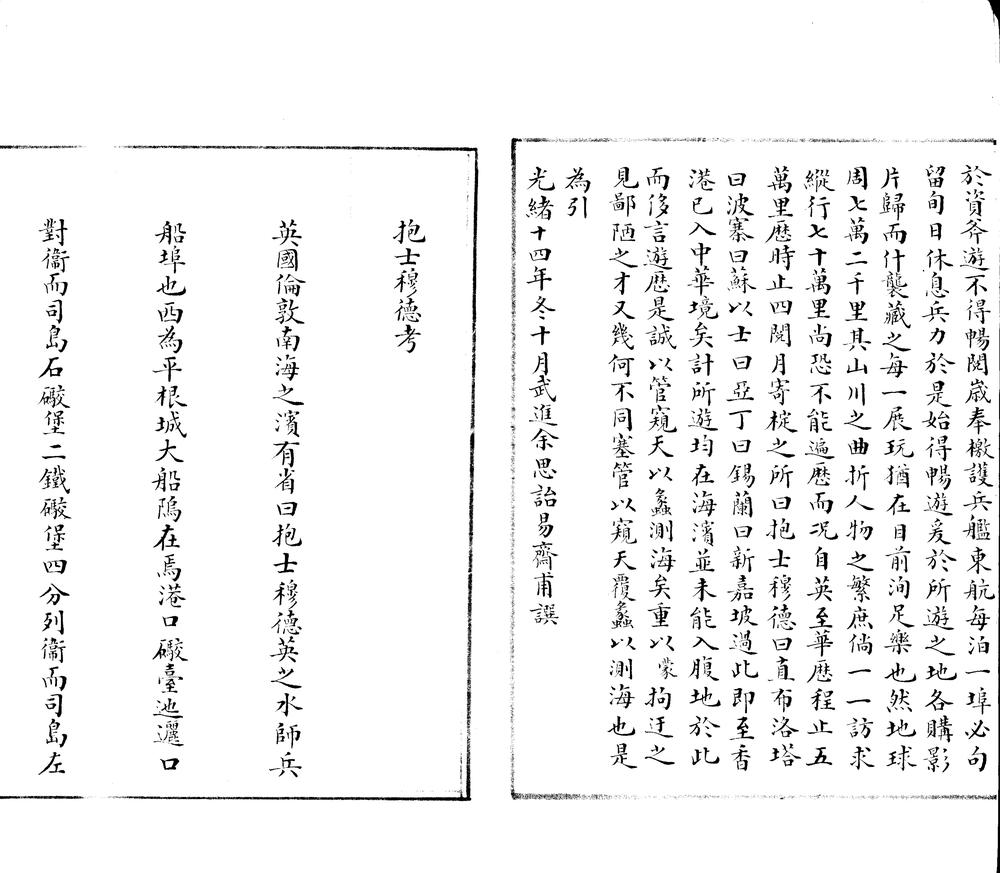 於資斧遊不得暢閱歲奉檄護兵艦東航每泊一埠必句
留旬日休息兵力於是始得暢遊爰於所遊之地各購影
片歸而什襲藏之每一展玩猶在目前洵足樂也然地球
周七萬二千里其山川之曲折人物之繁庶倘一一訪求
縱行七十萬里尚恐不能遍歷而况自英至華歷程止五
萬里歷時止四閱月寄椗之所曰抱士穆德曰直布洛塔
曰波塞曰蘇以士曰亞丁曰錫蘭曰新嘉坡過此即至香
港已入中華境矣計所遊均在海濱並未能入腹地於此
而侈言遊歷是誠以管窺天以蠡測海矣重以蒙拘迂之
見鄙陋之才又幾何不同塞管以窺天覆蠡以測海也是
為引
光緒十四年冬十月武進余思詒易齋甫譔
抱士穆德考
英國倫敦南海之濱有省曰抱士穆德英之水師兵
船埠也西為平根城大船隖在焉港口礮臺迆邐口
對衞而司島石礮堡二鐵礮堡四分列衞而司島左